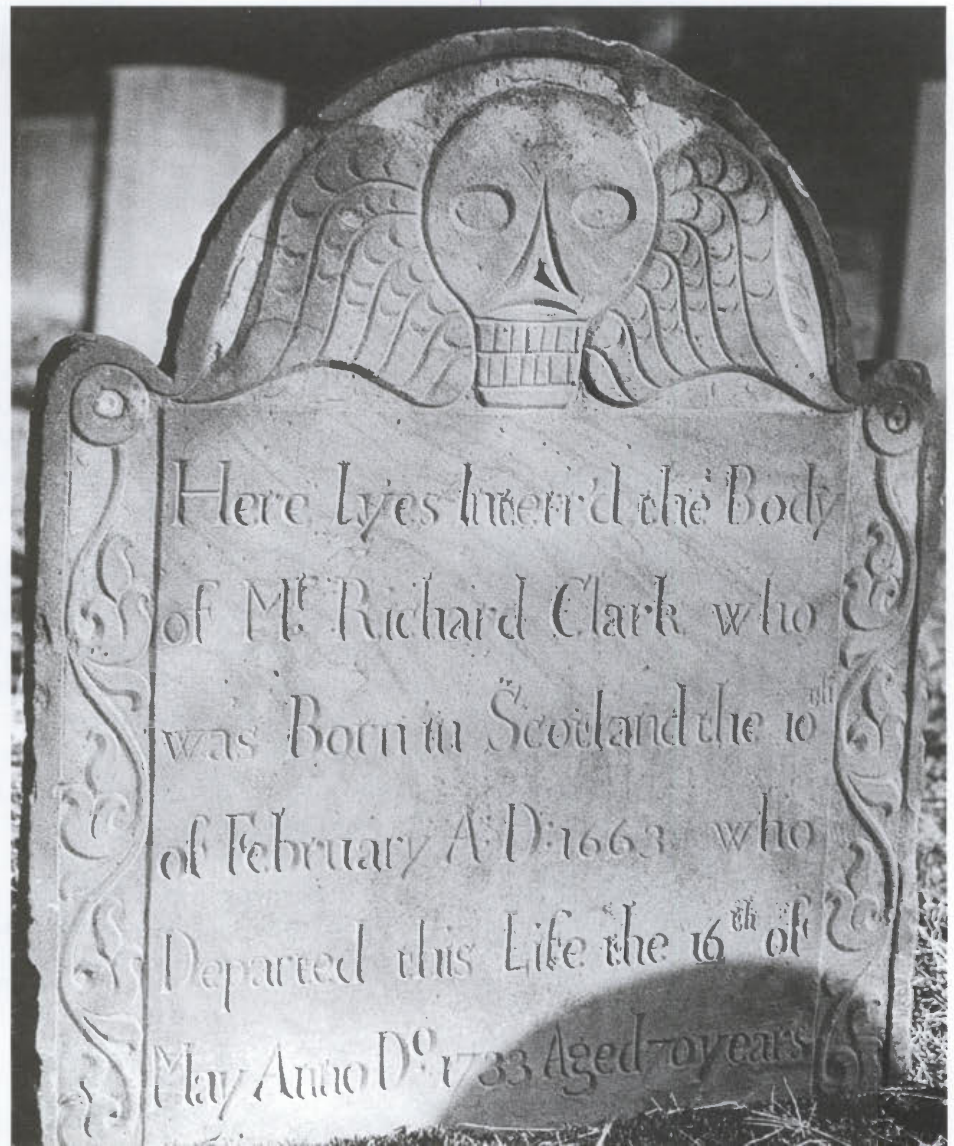 Here lyes Interr'd the Body
of Mr. Richard Clark who
was Born in Scotland the 10th
of February A:D:1663 who
Departed this Life the 16th of
May Anno Do. 1733 Aged 70 years